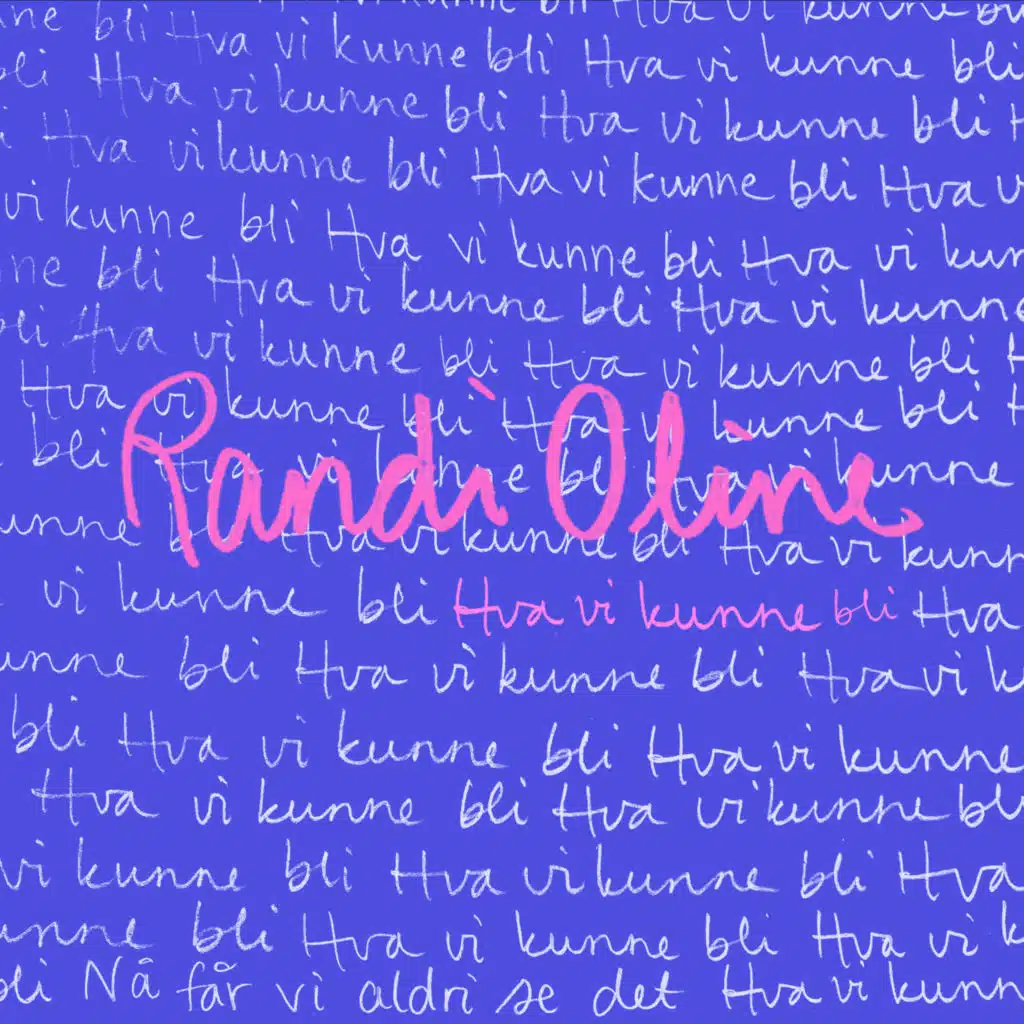 kunne bli Hva vi kunne bli
nne bli Hva vi kunne bli Hva vi kunne bli
bli Hva vi kunne bli Hva vi kunne bli
Hva vi kunne bli Hva vi kunne bli Hva v
vi kunne bli Hva vi kunne bli Hva vi kun
nne bli Hva vi kunne bli Hva vi kunne
bli Hva vi kunne bli Hva vi kunne bli
Hva vi kunne bli Hva vi kunne bli
Randi Oline
bli Hva vi kunne bli Hva vi kunne
unne bli Hva vi kunne bli Hva vi kunn
vi kunne bli Hva vi kunne bli Hva
unne bli Hva vi kunne bli Hva vi k
bli Hva vi kunne bli Hva vi kunne
Hva vi kunne bli Hva vi kunne bli
vi kunne bli Hva vi kunne bli Hva
unne bli Hva vi kunne bli Hva vi k
bli Nå får vi aldri se det Hva vi kunn